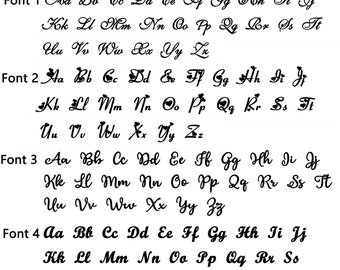 Font 1 Aa Bb Cc Dd Ee Ff Gg Hh Ii Jj
Kk Ll Mm Nn Oo Pp Qq Rr Ss Tt
Uu Vv Ww Xx Yy Zz
Font 2 Aa Bb Cc Dd Ee Ff Gg Hh Ii Jj
Kk Ll Mm Nn Oo Pp Qq Rr Ss Tt
Uu Vv Ww Xx Yy Zz
Font 3 Aa Bb Cc Dd Ee Ff Gg Hh Ii Jj
Kk Ll Mm Nn Oo Pp Qq Rr Ss Tt
Uu Vv Ww Xx Yy Zz
Font 4 Aa Bb Cc Dd Ee Ff Gg Hh Ii Jj
Kk Ll Mm Nn Oo Pp Qq Rr Ss